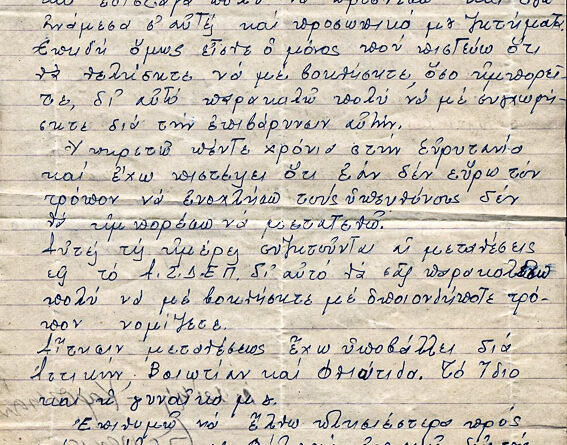 ἀνάμεσα σ' αὐτές καί προσωπικά μου ζητήματα.
Ἐπειδή ὅμως εἶστε ὁ μόνος πού πιστεύω ὅτι
θά θελήσετε νά μέ βοηθήσετε ὅσο ἠμπορεῖ-
τε, δι' αὐτό παρακαλῶ πολύ νά μέ συγχωρή-
σετε διά τήν ἐπιβάρυνσιν αὐτήν.
Ὑπηρετῶ πέντε χρόνια στήν Εὐρυτανία
καί ἔχω πιστέψει ὅτι ἐάν δέν εὕρω τόν
τρόπον νά ἐνοχλήσω τούς ὑπευθύνους δέν
θά ἠμπορέσω νά μετατεθῶ.
Αὐτές τίς ἡμέρες συζητοῦνται αἱ μεταθέσεις
εἰς τό Α.Σ.Δ.Ε.Π. δι' αὐτό θά σᾶς παρακαλέσω
πολύ νά μέ βοηθήσετε μέ ὁποιονδήποτε τρό-
πον νομίζετε.
Αἴτησιν μεταθέσεως ἔχω ὑποβάλλει διά
Ἀττικήν Βοιωτίαν καί Φθιώτιδα. Τό ἴδιο
καί ἡ γυναῖκα μου.
Ἐπιθυμῶ νά ἔλθω πλησιέστερα πρός